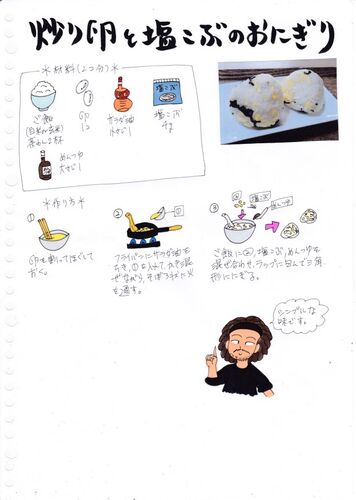 炒り卵と塩こぶのおにぎり
*材料(2コ分)*
ご飯
(白米か玄米)
茶わん2杯
卵
1コ
サラダ油
小さじ1
塩こぶ
塩こぶ
4g
めんつゆ
大さじ1
*作り方*
①
卵を割ってほぐして
おく。
②
①
フライパンにサラダ油を
しき、①を入れて、かき混
ぜながら、そぼろ状に火
を通す。
③
②
塩こぶ
めんつゆ
ご飯に②、塩こぶ、めんつゆを
混ぜ合わせ、ラップに包んで三角
形ににぎる。
シンプルな
味です。